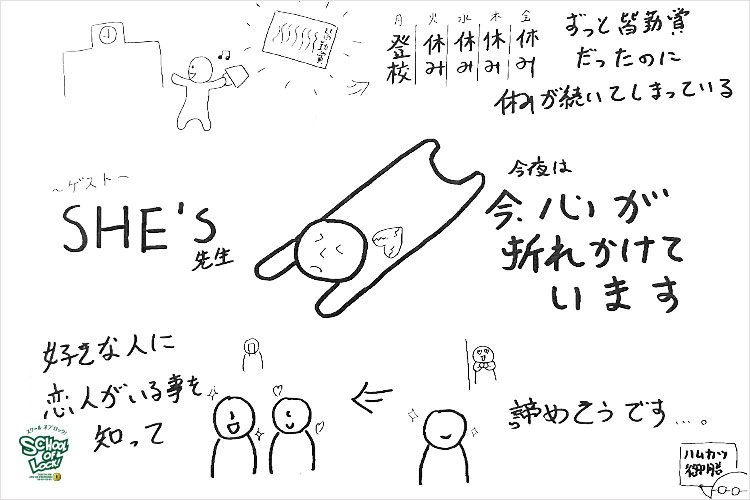 皆勤賞
月 火 水 木 金
登校 休み 休み 休み 休み
ずっと皆勤賞
だったのに
休みが続いてしまっている
～ゲスト～
SHE's
先生
今夜は
今、心が
折れかけて
います
好きな人に
恋人がいる事を
知って
諦めそうです…。
スクール オブ ロック!
SCHOOL
OF
LOCK!
ハムカツ
御膳